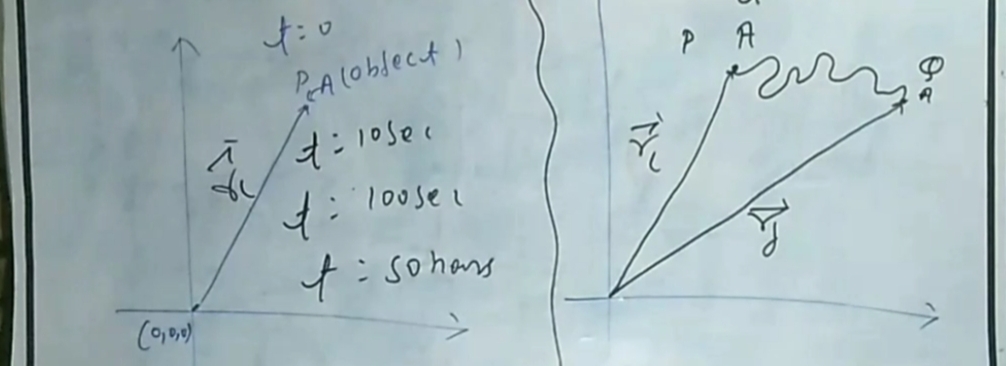 t = 0
P A (object)
t = 10 sec
r⃗i
t = 100 sec
t = 50 hours
(0,0,0)
P A
Q
A
r⃗i
r⃗f